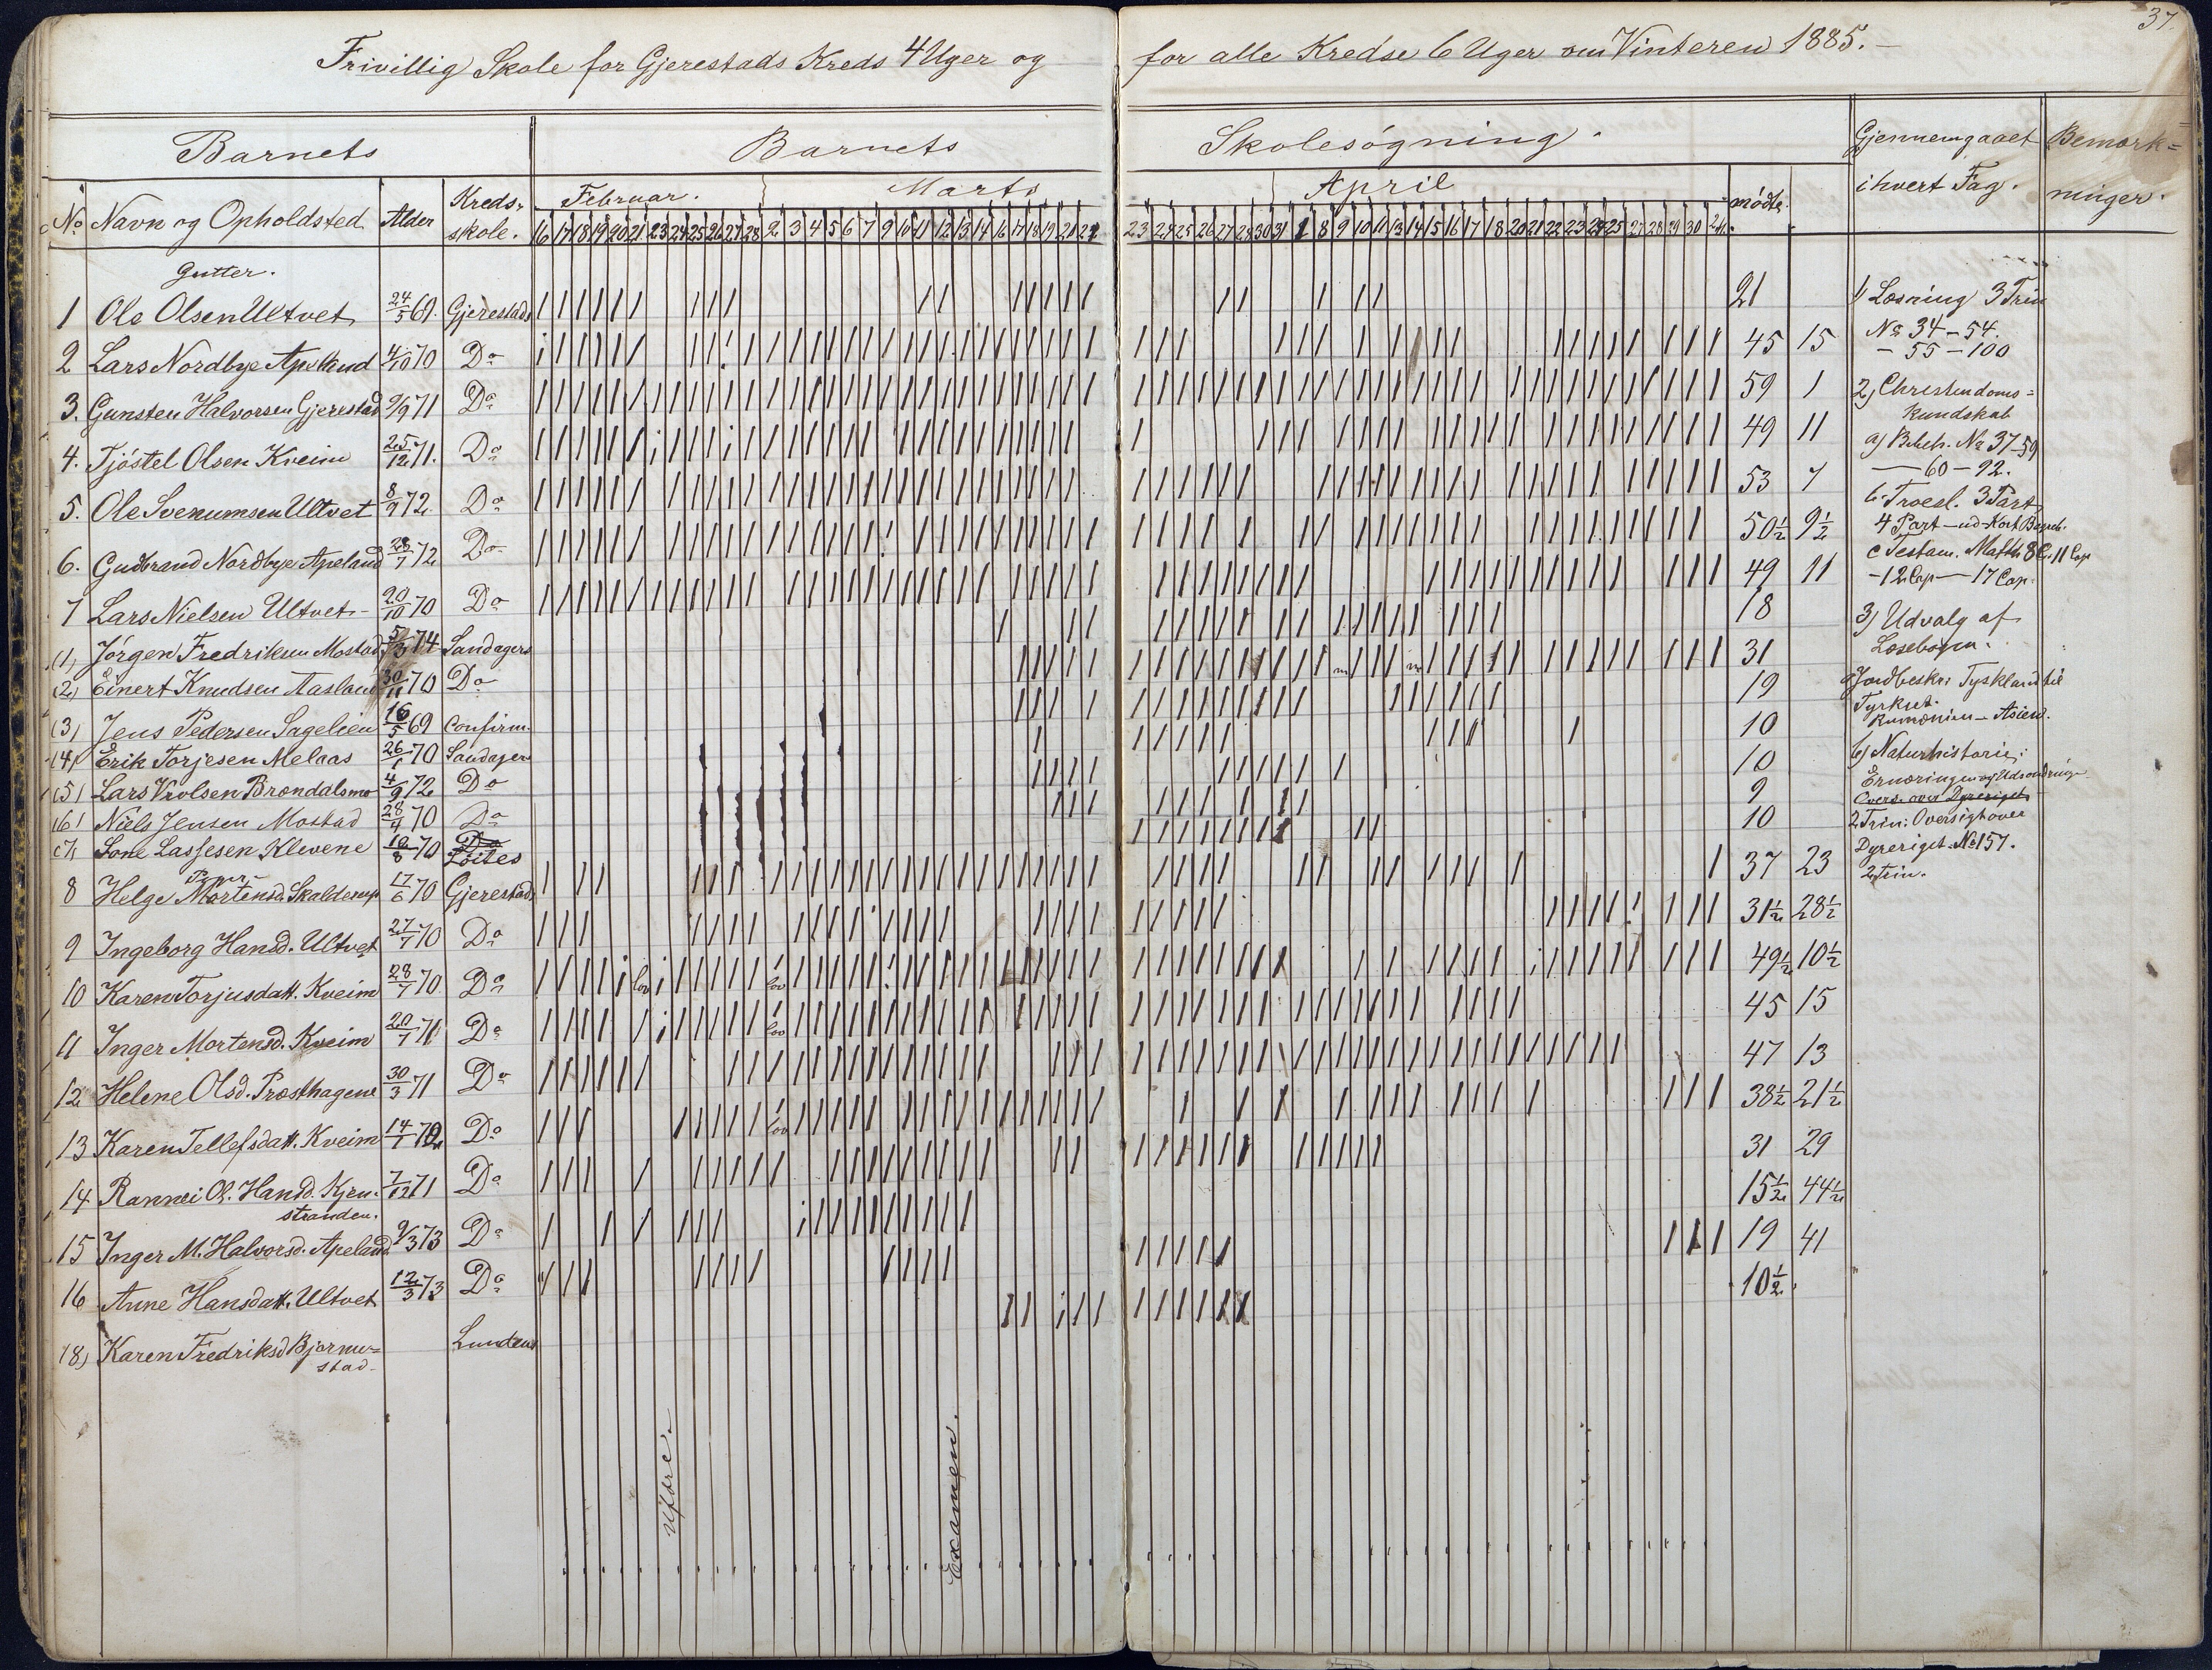 37.
Frivillig Skole for Gjerestads Kreds 4 Uger og for alle Kredse 6 Uger om Vinteren 1885.-
Barnets Barnets Skolesøgning. Gjennemgaaet i hvert Fag. Bemærkninger.
No Navn og Opholdsted Alder Kreds-skole. Februar. Marts April mødte.
16 17 18 19 20 21 23 24 25 26 27 28 2 3 4 5 6 7 9 10 11 12 13 14 16 17 18 19 21 22 23 24 25 26 27 28 30 31 1 8 9 10 11 13 14 15 16 17 18 20 21 22 23 24 25 27 28 29 30
Gutter.
1 Ole Olsen Ultvet 24/5 69. Gjerestads 21
2 Lars Nordbye Apeland 4/10 70 Do 45 15
3. Gunsten Halvorsen Gjerestad 9/9 71 Do 59 1
4. Tjöstel Olsen Kveim 25/12 71. Do 49 11
5. Ole Svenumsen Ultvet 8/9 72 Do 53 7
6. Gudbrand Nordbye Apeland 28/7 72 Do 50½ 9½
7 Lars Nielsen Ultvet- 20/10 70 Do 49 11
(1) Jörgen Fredriksen Mostad 5/3 74 Sandagers 18
(2) Einert Knudsen Aasland 30/11 70 Do 31
(3) Jens Pedersen Sagelien 16/5 69 Confirm. 19
(4) Erik Torjesen Melaas 26/1 70 Sandagers 10
(5) Lars Vrolsen Brøndalsmo 4/9 72 Do 10
(6) Niels Jensen Mostad 28/4 70 Do 9
(7) Sone Lassesen Klevene 10/8 70 Do Löites 10
Piger
8 Helge Mortensd. Skalderup 17/6 70 Gjerestads 37 23
9 Ingeborg Hansd. Ultvet 27/7 70 Do 31½ 28½
10 Karen Torjusdatt. Kveim 28/7 70 Do 49½ 10½
11 Inger Mortensd. Kveim 20/7 71 Do 45 15
12 Helene Olsd. Præsthagene 30/3 71 Do 47 13
13 Karen Tellefsdatt. Kveim 14/1 72 Do 38½ 21½
14 Rannei Ol. Hansd. Kjen- 7/12 71 Do 31 29
stranden.
15 Inger M. Halvorsd. Apeland 9/3 73 Do 15½ 44½
16 Anne Hansdatt. Ultvet 12/3 73 Do 19 41
18) Karen Fredriksd Bjorme- Lundens 10½
stad-
Uføre.
Examen.
1) Læsning 3 Trin
No 34-54.
- 55-100
2) Christendoms-
kundskab
a) B.h. No 37-59
— 60-92.
b. Troesl. 3 Part
4 Part - ud Kort Begreb.
c Testam. Matth 8 C. 11 Cap
- 12 Cap — 17 Cap.
3) Udvalg af
Læsebogen.
Jordbeskr: Tyskland til
Tyrkiet.
Rumænien - Asien.
6) Naturhistorie:
Ernæringen og Udsondringe
Overs. over Dyreriget
2 Trin: Oversigt over
Dyreriget No 157.
2 Trin.